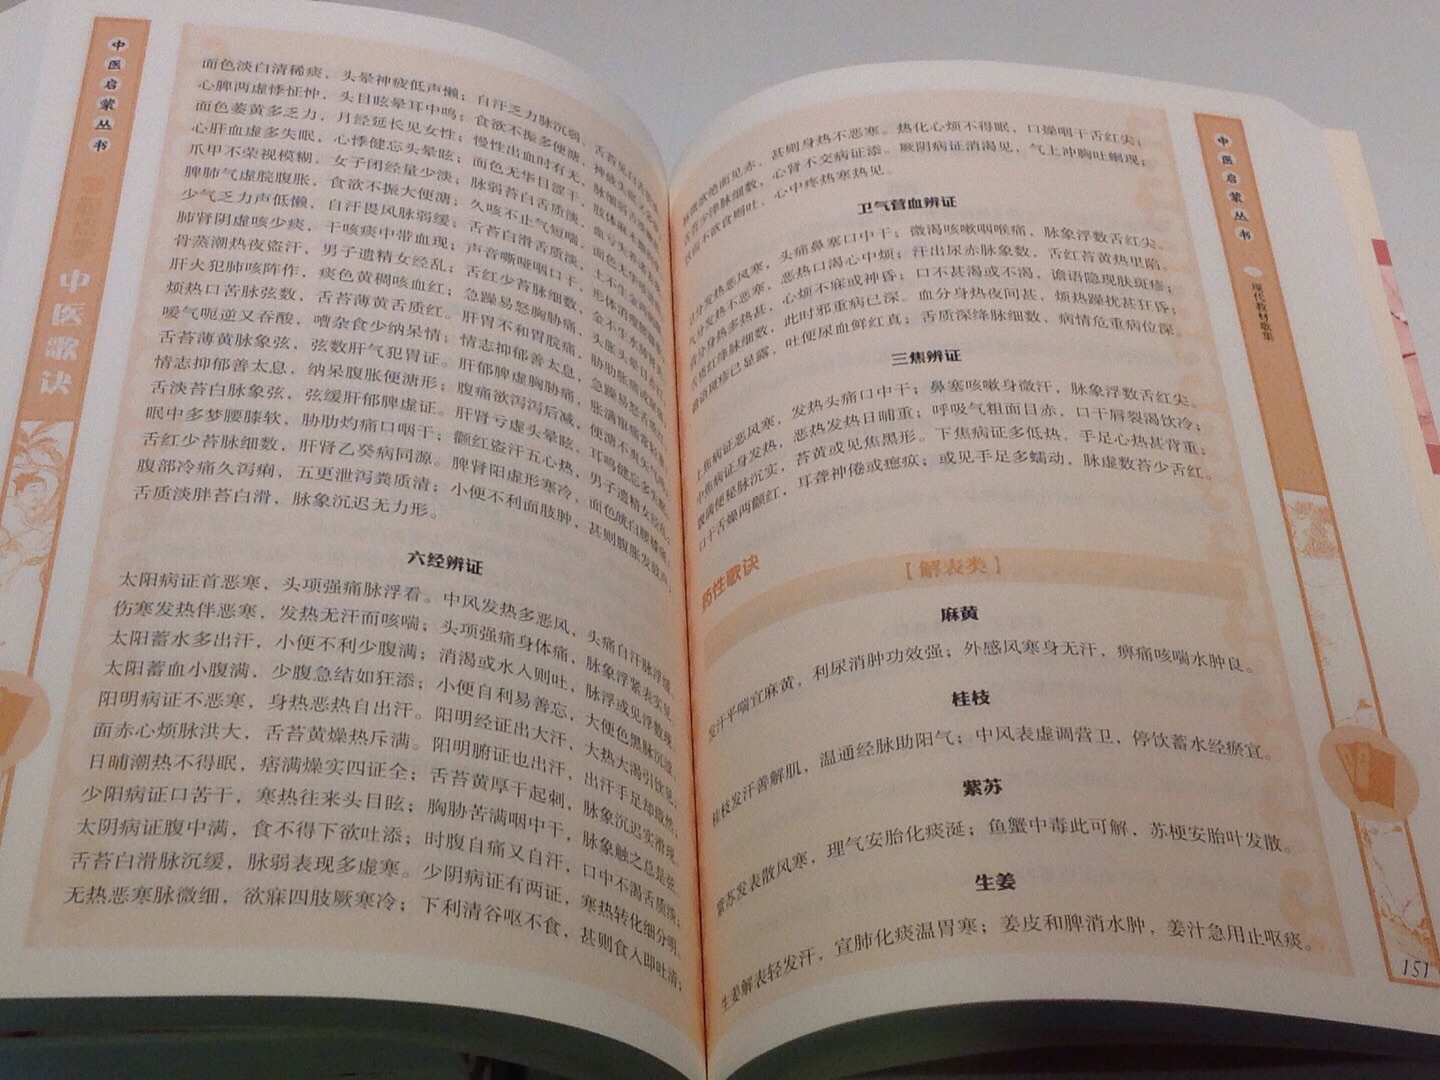 中医启蒙丛书
中医歌诀
面色淡白清稀痰，头晕神疲低声懒；自汗乏力脉沉弱，舌苔见白舌质淡
心脾两虚悸怔忡，头目眩晕耳中鸣；食欲不振多便溏，神疲失眠多
面色萎黄多乏力，月经延长见女性；慢性出血时有无，脉细弱舌
心肝血虚多失眠，心悸健忘头晕眩；面色无华目涩干，肢体麻木
爪甲不荣视模糊，女子闭经量少淡；脉弱苔白舌质淡，血亏头
脾肺气虚脘腹胀，食欲不振大便溏；久咳不止气短喘，面色无华
少气乏力声低懒，自汗畏风脉弱缓；舌苔白滑舌质淡，土不生金
肺肾阴虚咳少痰，干咳痰中带血现；声音嘶哑咽口干，形体消瘦腰
骨蒸潮热夜盗汗，男子遗精女经乱；舌红少苔脉细数，金不生水
肝火犯肺咳阵作，痰色黄稠咳血红；急躁易怒胸胁痛，头胀头晕目
烦热口苦脉弦数，舌苔薄黄舌质红。肝胃不和胃脘痛，胁肋胀痛
嗳气呃逆又吞酸，嘈杂食少纳呆情；情志抑郁善太息，急躁易怒舌质红
舌苔薄黄脉象弦，弦数肝气犯胃证。肝郁脾虚胸胁痛，胀满窜痛
情志抑郁善太息，纳呆腹胀便溏形；腹痛欲泻泻后减，便溏不爽矢气
舌淡苔白脉象弦，弦缓肝郁脾虚证。肝肾亏虚头晕眩，耳鸣健忘多失眠
眠中多梦腰膝软，胁肋灼痛口咽干；颧红盗汗五心热，男子遗精女经乱
舌红少苔脉细数，肝肾乙癸病同源。脾肾阳虚形寒冷，面色㿠白腰膝痛
腹部冷痛久泻痢，五更泄泻粪质清；小便不利面肢肿，甚则腹胀
舌质淡胖苔白滑，脉象沉迟无力形。
六经辨证
太阳病证首恶寒，头项强痛脉浮看。中风发热多恶风，头痛自汗脉浮缓
伤寒发热伴恶寒，发热无汗而咳喘；头项强痛身体痛，脉象浮紧表实见
太阳蓄水多出汗，小便不利少腹满；消渴或水入则吐，脉浮或见浮数现
太阳蓄血小腹满，少腹急结如狂添；小便自利易善忘，大便色黑脉沉涩
阳明病证不恶寒，身热恶热自出汗。阳明经证出大汗，大热大渴引饮见
面赤心烦脉洪大，舌苔黄燥热斥满。阳明腑证也出汗，出汗手足却濈然；
日晡潮热不得眠，痞满燥实四证全；舌苔黄厚干起刺，脉象沉迟实滑现。
少阳病证口苦干，寒热往来头目眩；胸胁苦满咽中干，脉象触之总是弦。
太阴病证腹中满，食不得下欲吐添；时腹自痛又自汗，口中不渴舌质淡；
舌苔白滑脉沉缓，脉弱表现多虚寒。少阴病证有两证，寒热转化细分明。
无热恶寒脉微细，欲寐四肢厥寒冷；下利清谷呕不食，甚则食入即吐清；
中医启蒙丛书
现代教材歌集
面见赤，甚则身热不恶寒。热化心烦不得眠，口燥咽干舌红尖；
脉细数，心肾不交病证添。厥阴病证消渴见，气上冲胸吐蛔现；
不欲食则吐，心中疼热寒热见。
卫气营血辨证
发热恶风寒，头痛鼻塞口中干；微渴咳嗽咽喉痛，脉象浮数舌红尖。
发热不恶寒，恶热口渴心中烦；汗出尿赤脉象数，舌红苔黄热里陷。
身热多热甚，心烦不寐或神昏；口不甚渴或不渴，谵语隐现肤斑疹；
舌质红绛脉细数，此时邪重病已深。血分身热夜间甚，烦热躁扰甚狂昏；
谵语斑疹已显露，吐便尿血鲜红真；舌质深绛脉细数，病情危重病位深。
三焦辨证
上焦病证恶风寒，发热头痛口中干；鼻塞咳嗽身微汗，脉象浮数舌红尖。
中焦病证身发热，恶热发热日晡重；呼吸气粗面目赤，口干唇裂渴饮冷；
腹满便秘脉沉实，苔黄或见焦黑形。下焦病证多低热，手足心热甚背重；
口干舌燥两颧红，耳聋神倦或瘛疭；或见手足多蠕动，脉虚数苔少舌红。
药性歌诀
【解表类】
麻黄
发汗平喘宜麻黄，利尿消肿功效强；外感风寒身无汗，痹痛咳喘水肿良。
桂枝
桂枝发汗善解肌，温通经脉助阳气；中风表虚调营卫，停饮蓄水经瘀宜。
紫苏
紫苏发表散风寒，理气安胎化痰涎；鱼蟹中毒此可解，苏梗安胎叶发散。
生姜
生姜解表轻发汗，宣肺化痰温胃寒；姜皮和脾消水肿，姜汁急用止呕痰。
151